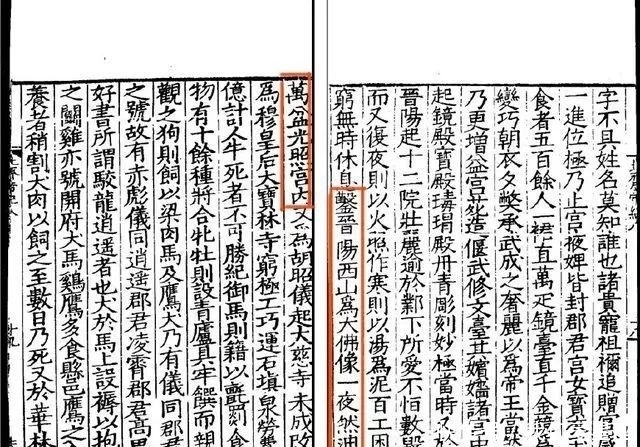 字不具姓名莫知誰也諸貴寵祖禰追贈官
一進位極乃止宮掖婢皆封郡君宮女寶
食者五百餘人一裙直萬疋鏡臺直千金
變巧朝衣夕弊承武成之奢麗以爲帝王當
乃更增益宮苑造偃武修文臺其嬪嬙諸宮中
起鏡殿寶殿瑇瑁殿丹青彫刻妙極當時又
晉陽起十二院壯麗逾於鄴下所愛不恒數
而又復夜則以火照作寒則以湯爲泥百工困
窮無時休息鑿晉陽西山爲大佛像一夜然油
萬盆光照宮內又爲胡昭儀起大慈寺未成改
爲穆皇后大寶林寺窮極工巧運石填泉勞
億計人牛死者不可勝紀御馬則籍以氈罽
物有十餘種將合牝牡則設青廬具牢饌而親
觀之狗則飼以粱肉馬及鷹犬乃有儀同郡君
之號故有赤彪儀同逍遙郡君凌霄郡君高思
好書所謂駮龍逍遙者也犬於馬上設褥以抱
之鬬雞亦號開府犬馬雞鷹多食縣邑鷹之
養者稍割犬肉以飼之至數日乃死又於華林